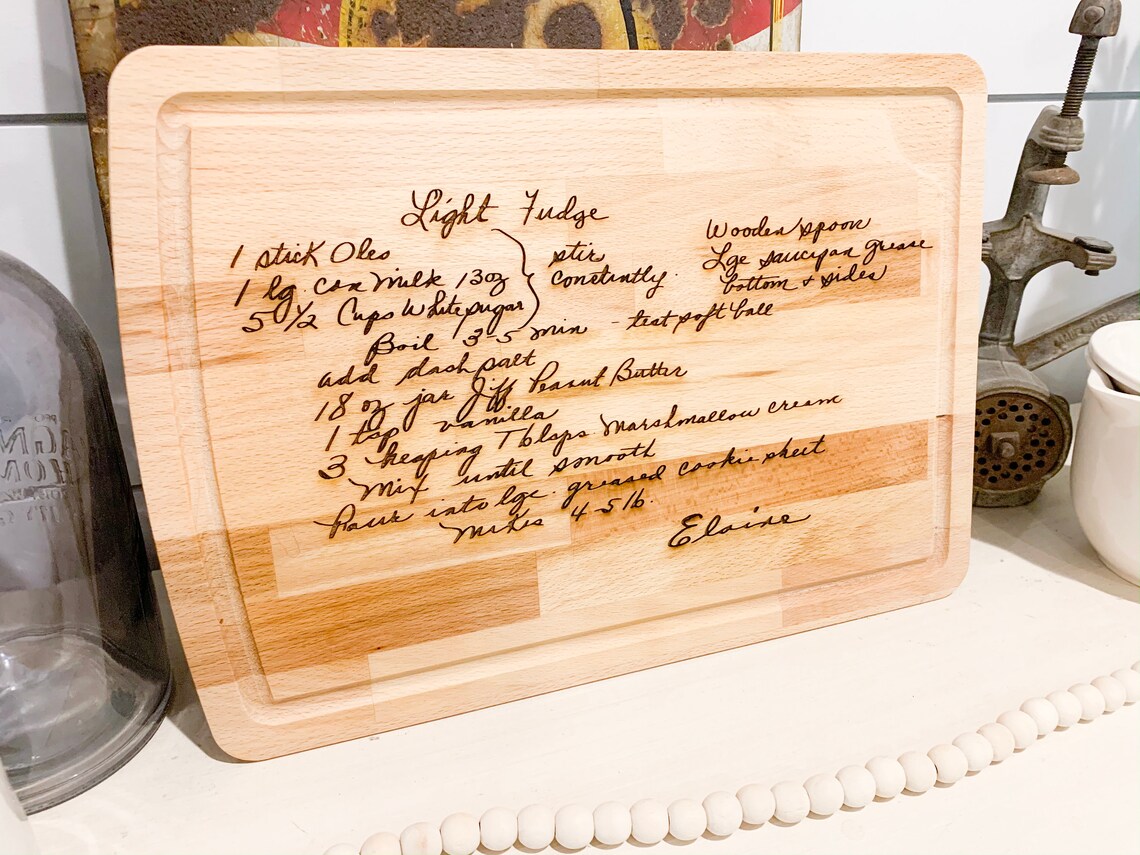 Light Fudge
1 stick Oleo
1 lg. can Milk 13oz
5 1/2 Cups White sugar
stir
constantly.
Wooden spoon
Lge saucepan grease
bottom + sides
Boil 3-5 min - test soft ball
add dash salt
18 oz jar Jiff Peanut Butter
1 tsp vanilla
3 heaping Tblsps Marshmallow cream
Mix until smooth
Pour into lge. greased cookie sheet
Makes 4-5 lb.
Elaine